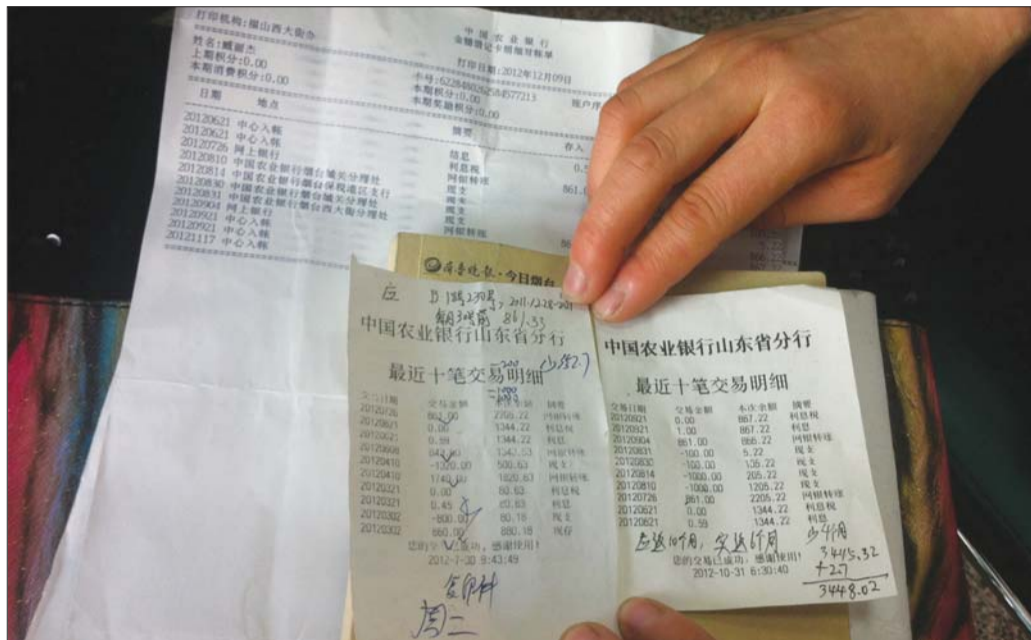 打印机构:福山西大街分
中国农业银行
金穗借记卡明细对账单
姓名:臧丽杰
打印日期:2012年12月09日
上期积分:0.00
卡号:6228480262584577213
账户序
本期消费积分:0.00
本期积分:0.00
本期奖励积分:0.00
日期 地点 摘要 存入
20120621 中心入帐 结息 0.5
20120621 中心入帐 利息税
20120726 网上银行 网银转账 861.0
20120810 中国农业银行烟台城关分理处 现支
20120814 中国农业银行烟台保税港区支行 现支
20120830 中国农业银行烟台城关分理处 现支
20120831 中国农业银行烟台西大街分理处 现支
20120904 网上银行 网银转账
20120921 中心入帐
20120921 中心入帐
20121117 中心入帐
齐鲁晚报·今日烟台
861.33
中国农业银行山东省分行
最近十笔交易明细
交易日期 交易金额 本次余额 摘要
20120726 861.00 2205.22 网银转账
20120621 0.00 1344.22 利息税
20120621 0.59 1344.22 利息
20120410 -1320.00 500.63 现支
20120410 1740.00 1820.63 网银转账
20120321 0.00 80.63 利息税
20120321 0.45 80.63 利息
20120302 -800.00 80.18 现支
20120302 860.00 880.18 现存
您的交易已成功,感谢使用!
2012-7-30 9:43:49
复印件
周二
中国农业银行山东省分行
最近十笔交易明细
交易日期 交易金额 本次余额 摘要
20120921 0.00 867.22 利息税
20120921 1.00 867.22 利息
20120904 861.00 866.22 网银转账
20120831 -100.00 5.22 现支
20120830 -100.00 105.22 现支
20120814 -1000.00 205.22 现支
20120810 -1000.00 1205.22 现支
20120726 861.00 2205.22 网银转账
20120621 0.00 1344.22 利息税
20120621 0.59 1344.22 利息
应返10个月,实返6个月 少4个月
您的交易已成功,感谢使用!
2012-10-31 6:30:40
3445.32
+2.7
3448.02